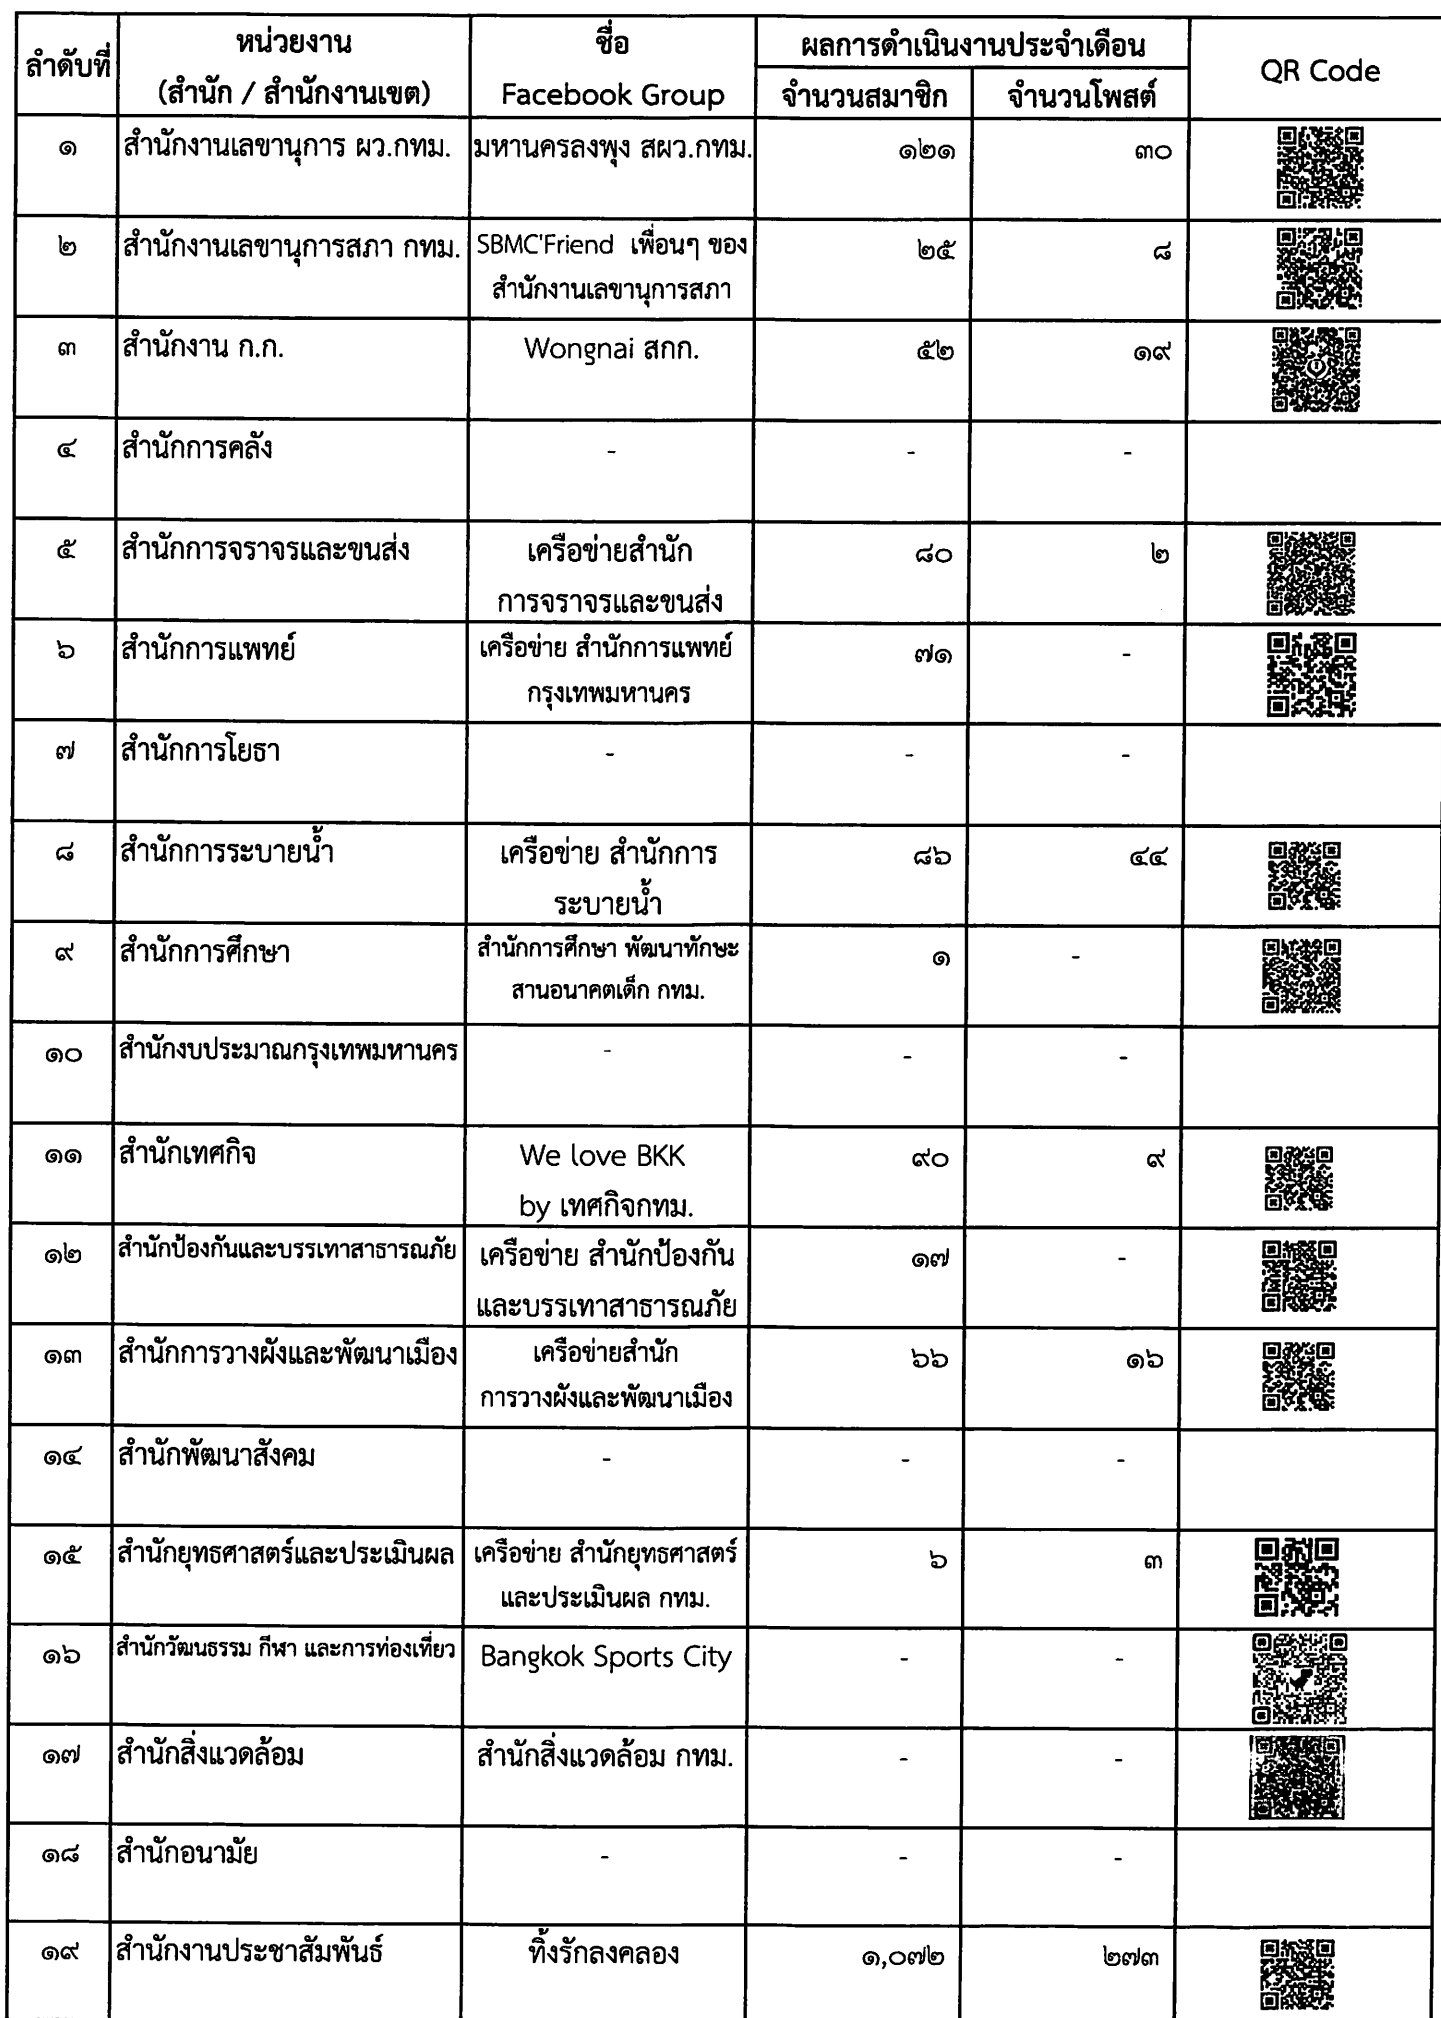 ลำดับที่ หน่วยงาน ชื่อ ผลการดำเนินงานประจำเดือน QR Code
(สำนัก / สำนักงานเขต) Facebook Group จำนวนสมาชิก จำนวนโพสต์
๑ สำนักงานเลขานุการ ผว.กทม. มหานครลงพุง สผว.กทม. ๑๒๑ ๓๐
๒ สำนักงานเลขานุการสภา กทม. SBMC'Friend เพื่อนๆ ของ ๒๕ ๘
สำนักงานเลขานุการสภา
๓ สำนักงาน ก.ก. Wongnai สกก. ๕๒ ๑๙
๔ สำนักการคลัง - - -
๕ สำนักการจราจรและขนส่ง เครือข่ายสำนัก ๘๐ ๒
การจราจรและขนส่ง
๖ สำนักการแพทย์ เครือข่าย สำนักการแพทย์ ๗๑ -
กรุงเทพมหานคร
๗ สำนักการโยธา - - -
๘ สำนักการระบายน้ำ เครือข่าย สำนักการ ๘๖ ๔๔
ระบายน้ำ
๙ สำนักการศึกษา สำนักการศึกษา พัฒนาทักษะ ๑ -
สานอนาคตเด็ก กทม.
๑๐ สำนักงบประมาณกรุงเทพมหานคร - - -
๑๑ สำนักเทศกิจ We love BKK ๙๐ ๙
by เทศกิจกทม.
๑๒ สำนักป้องกันและบรรเทาสาธารณภัย เครือข่าย สำนักป้องกัน ๑๗ -
และบรรเทาสาธารณภัย
๑๓ สำนักการวางผังและพัฒนาเมือง เครือข่ายสำนัก ๖๖ ๑๖
การวางผังและพัฒนาเมือง
๑๔ สำนักพัฒนาสังคม - - -
๑๕ สำนักยุทธศาสตร์และประเมินผล เครือข่าย สำนักยุทธศาสตร์ ๖ ๓
และประเมินผล กทม.
๑๖ สำนักวัฒนธรรม กีฬา และการท่องเที่ยว Bangkok Sports City - -
๑๗ สำนักสิ่งแวดล้อม สำนักสิ่งแวดล้อม กทม. - -
๑๘ สำนักอนามัย - - -
๑๙ สำนักงานประชาสัมพันธ์ ทิ้งรักลงคลอง ๑,๐๗๒ ๒๗๓